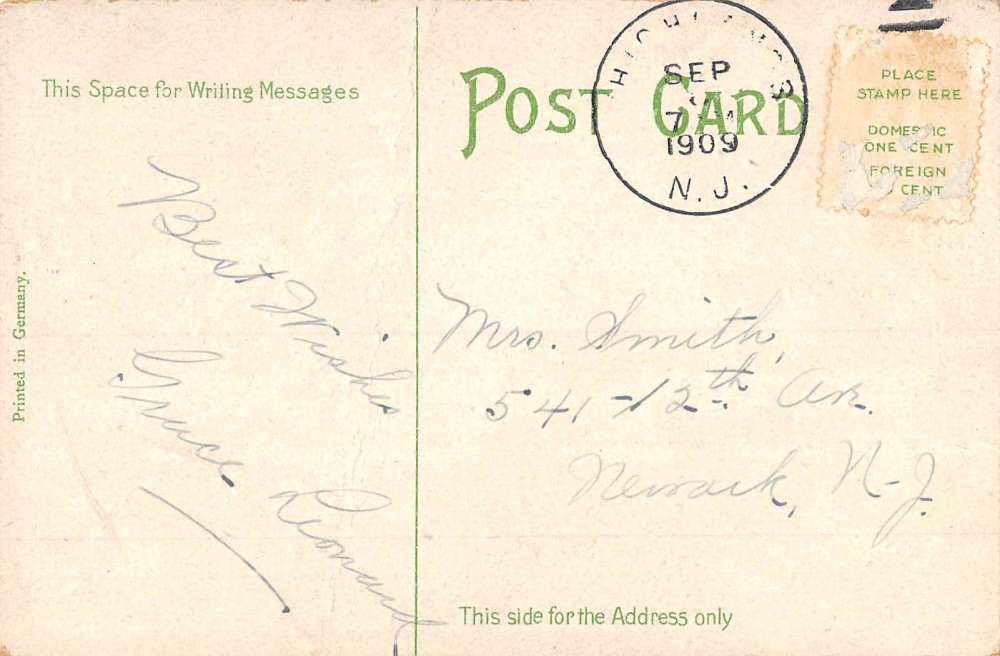 This Space for Writing Messages
POST CARD
SEP
7 M
1909
N. J.
PLACE
STAMP HERE
DOMESTIC
ONE CENT
FOREIGN
CENT
Best Wishes
Grace Leonard
Mrs. Smith,
541-12th Ave.
Newark, N-J.
Printed in Germany.
This side for the Address only